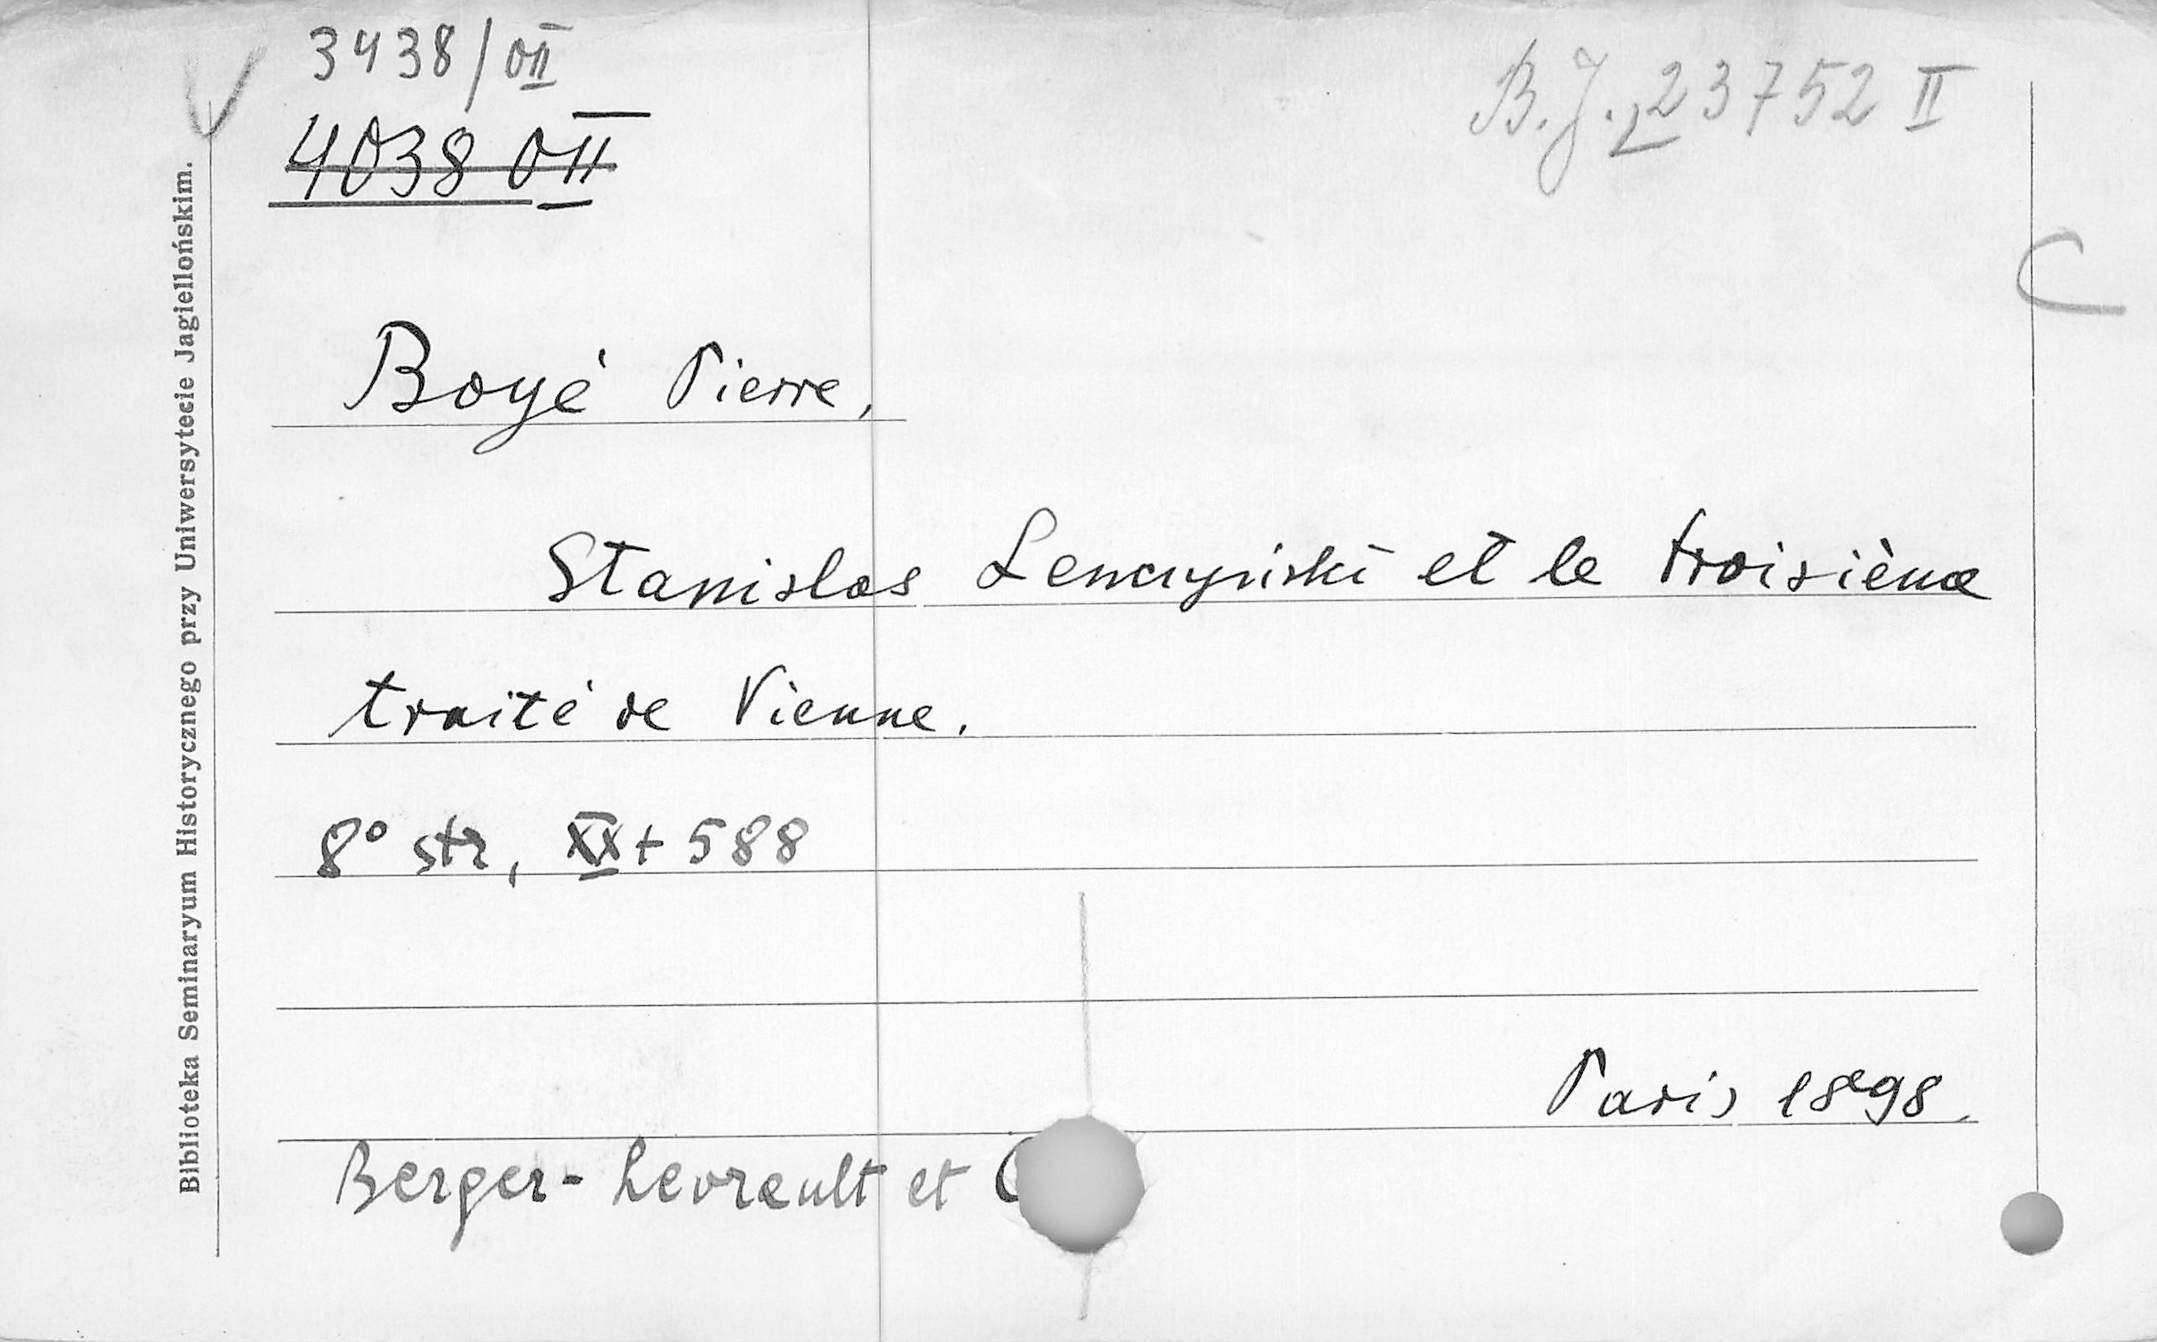 3438/OII
4038 OII
B.J. 23752 II
Boyé Pierre,
Stanislas Leszczyński et le troisième
traité de Vienne.
8° str, XX + 588
Paris 1898
Berger-Levrault et C
Biblioteka Seminaryum Historycznego przy Uniwersytecie Jagiellońskim.